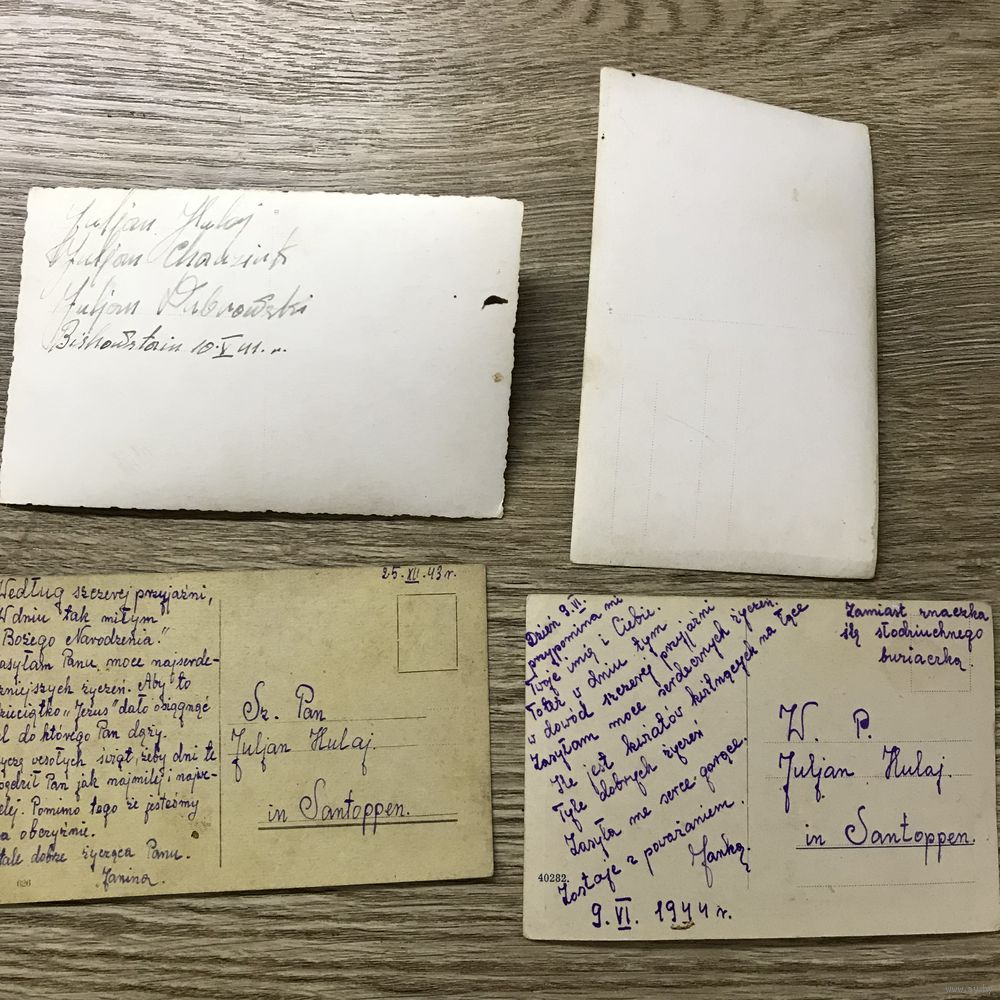 Juljan Hulaj
Juljan
Juljan Dubrowski
Bishowstain 10.V.41.r.
25.XII.43 r.
Według szczerej przyjaźni,
W dniu tak miłym
Bożego Narodzenia."
asyłam Panu moce najserde-
czniejszych życzeń. Aby to
zieciątko „Jezus" dało osiągnąć
el do którego Pan dąży.
yczę wesołych świąt, żeby dni te
pędził Pan jak najmilej i najwe-
elej. Pomimo tego że jesteśmy
a obczyźnie.
tale dobrze życząca Panu.
Janina.
626
Sz. Pan
Juljan Hulaj.
in Santoppen.
Dzień 9.VI.
przypomina mi
Twoje imię i Ciebie.
Toteż w dniu tym
w dowód szczerej przyjaźni
Zasyłam moce serdecznych życzeń.
Ile jest kwiatów kwitnących na łące
Tyle dobrych życzeń
Zasyła me serce gorące.
Zostaję z poważaniem.
Janka.
9.VI. 1944 r.
40282.
Zamiast znaczka
ślę słodziuchnego
buziaczka.
W. P.
Juljan Hulaj.
in Santoppen.
www.ay.by